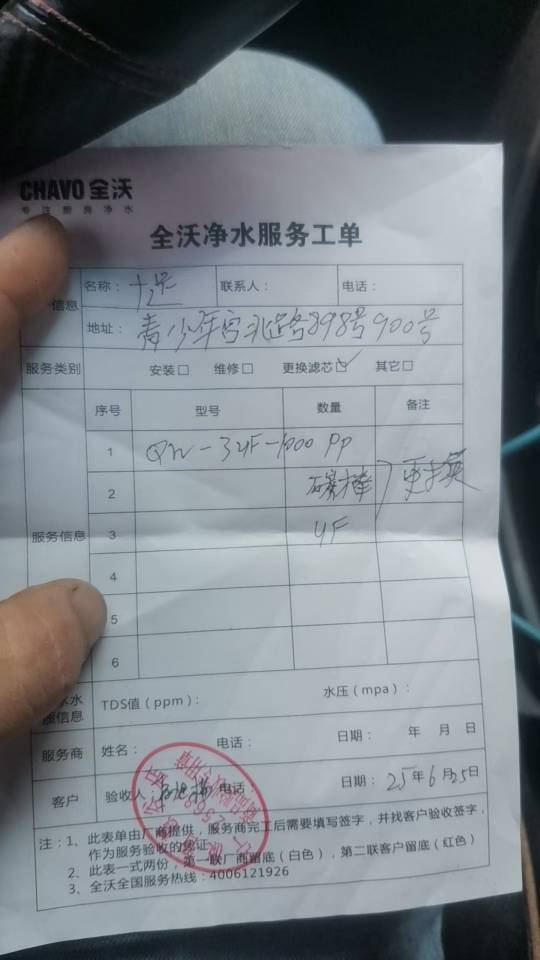 CHAVO 全沃
专注厨房净水
全沃净水服务工单
信息 名称： 联系人： 电话：
地址：青少年宫北路898号900号
服务类别 安装□ 维修□ 更换滤芯☑ 其它□
服务信息 序号 型号 数量 备注
1 QW-3UF-1000 PP
2 碳棒 更换
3 UF
4
5
6
水信息 TDS值（ppm）： 水压（mpa）：
服务商 姓名： 电话： 日期： 年 月 日
客户 验收人： 电话 日期：25年6月25日
注：1、此表单由厂商提供，服务商完工后需要填写签字，并找客户验收签字，
作为服务验收的凭证
2、此表一式两份，第一联厂商留底（白色），第二联客户留底（红色）
3、全沃全国服务热线：4006121926